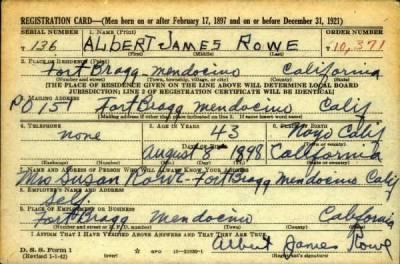 REGISTRATION CARD—(Men born on or after February 17, 1897 and on or before December 31, 1921)
SERIAL NUMBER 1. NAME (Print) ORDER NUMBER
T 136 ALBERT JAMES ROWE T10,371
(First) (Middle) (Last)
2. PLACE OF RESIDENCE (Print)
Fort Bragg Mendocino California
(Number and street) (Town, township, village, or city) (County) (State)
[THE PLACE OF RESIDENCE GIVEN ON THE LINE ABOVE WILL DETERMINE LOCAL BOARD
JURISDICTION; LINE 2 OF REGISTRATION CERTIFICATE WILL BE IDENTICAL]
3. MAILING ADDRESS
PO 151 Fort Bragg Mendocino Calif
[Mailing address if other than place indicated on line 2. If same insert word same]
4. TELEPHONE 5. AGE IN YEARS 6. PLACE OF BIRTH
none 43 Noyo Calif
DATE OF BIRTH
August 3 1898 California
(Mo.) (Day) (Yr.) (State or country)
7. NAME AND ADDRESS OF PERSON WHO WILL ALWAYS KNOW YOUR ADDRESS
Mrs Susan Rowe - Fort Bragg Mendocino Calif
8. EMPLOYER'S NAME AND ADDRESS
Self.
9. PLACE OF EMPLOYMENT OR BUSINESS
Fort Bragg Mendocino California
(Number and street or R. F. D. number) (Town) (County) (State)
I AFFIRM THAT I HAVE VERIFIED ABOVE ANSWERS AND THAT THEY ARE TRUE.
D. S. S. Form 1
(Revised 1-1-42) (over) GPO
Albert James Rowe
(Registrant's signature)